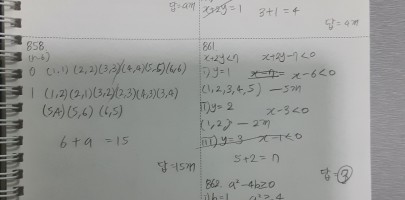 답=4개
x+2y=1
3+1=4
답=4개
858
0 (1,1) (2,2) (3,3) (4,4) (5,5) (6,6)
1 (1,2) (2,1) (3,2) (2,3) (4,3) (3,4)
(5,4) (5,6) (6,5)
6+9=15
답=15개
861
x+2y<7 x+2y-7<0
i) y=1 x-6<0
(1,2,3,4,5) - 5개
ii) y=2 x-3<0
(1,2) - 2개
iii) y=3 x-1<0
5+2=7
답=⑦
862 a²-4b≥0
i) b=1 a²≥4